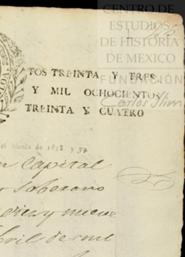 CENTRO DE
ESTUDIOS
DE HISTORIA
DE MEXICO
FUNDACIÓN
Carlos Slim
TOS TREINTA Y TRES
Y MIL OCHOCIENTOS
TREINTA Y CUATRO
Capital
Soberano
diez y nueve
bril de mil